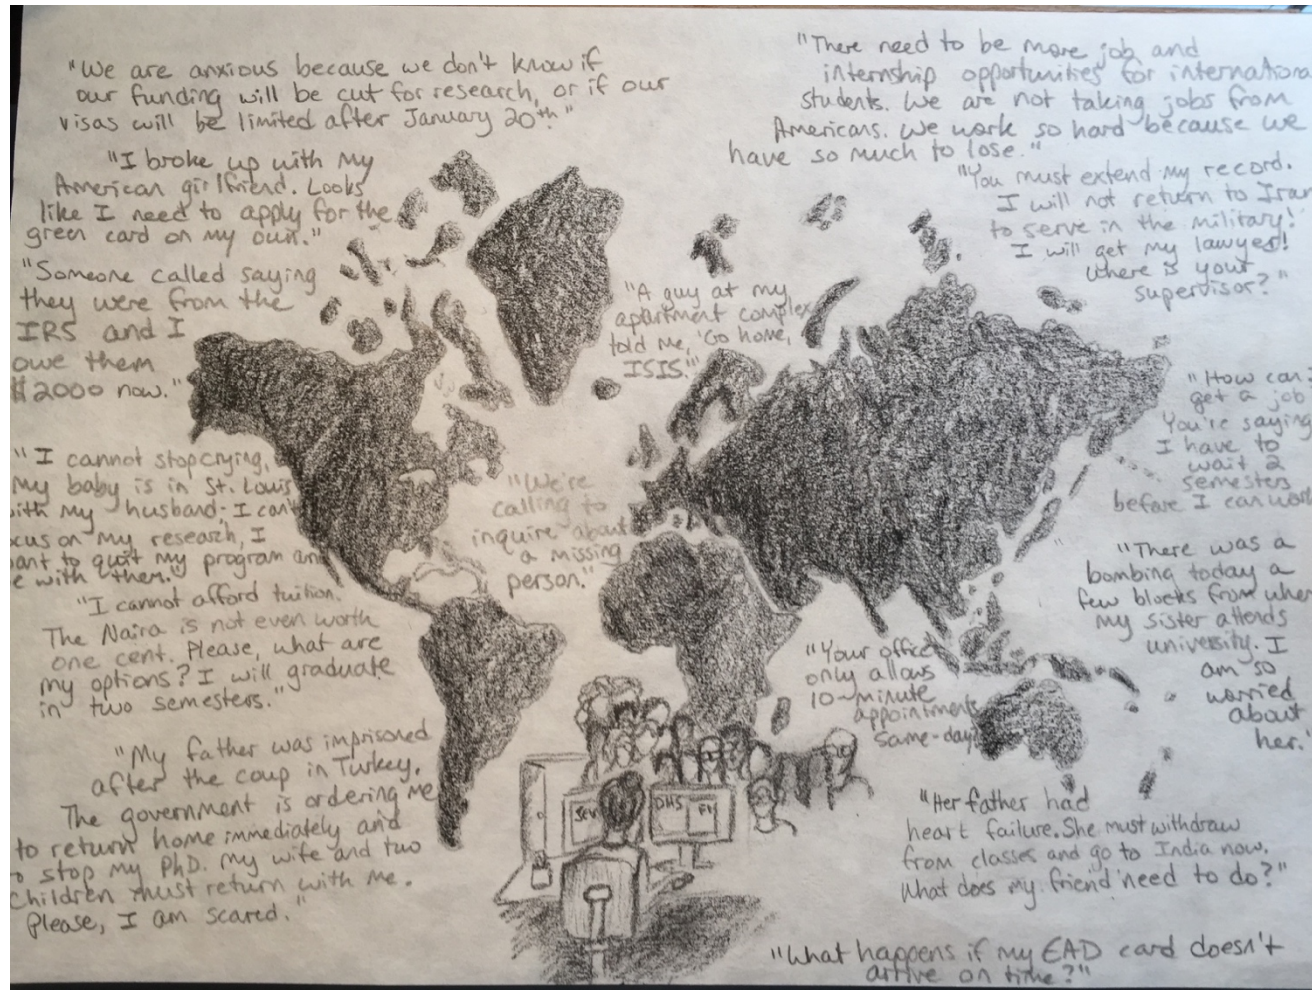 "We are anxious because we don't know if
our funding will be cut for research, or if our
visas will be limited after January 20th."
"I broke up with my
American girlfriend. Looks
like I need to apply for the
green card on my own."
"Someone called saying
they were from the
IRS and I
owe them
$2000 now."
"I cannot stop crying,
my baby is in St. Louis
with my husband; I can't
ocus on my research, I
ant to quit my program an
e with them."
"I cannot afford tuition.
The Naira is not even worth
one cent. Please, what are
my options? I will graduate
in two semesters."
"My father was imprisoned
after the coup in Turkey.
The government is ordering me
to return home immediately and
o stop my PhD. My wife and two
children must return with me.
Please, I am scared."
"A guy at my
apartment complex
told me, 'Go home,
ISIS.'"
"We're
calling to
inquire about
a missing
person."
SEV
DHS
FN
"There need to be more job and
internship opportunities for internationa
students. We are not taking jobs from
Americans. We work so hard because we
have so much to lose."
"You must extend my record.
I will not return to Iran
to serve in the military!
I will get my lawyer!
Where is your
supervisor?"
"How can I
get a job
You're saying
I have to
wait 2
semesters
before I can wor
"There was a
bombing today a
few blocks from wher
my sister attends
university. I
am so
worried
about
her."
"Your office
only allows
10-minute
appointments
same-day
"Her father had
heart failure. She must withdraw
from classes and go to India now.
What does my friend need to do?"
"What happens if my EAD card doesn't
arrive on time?"